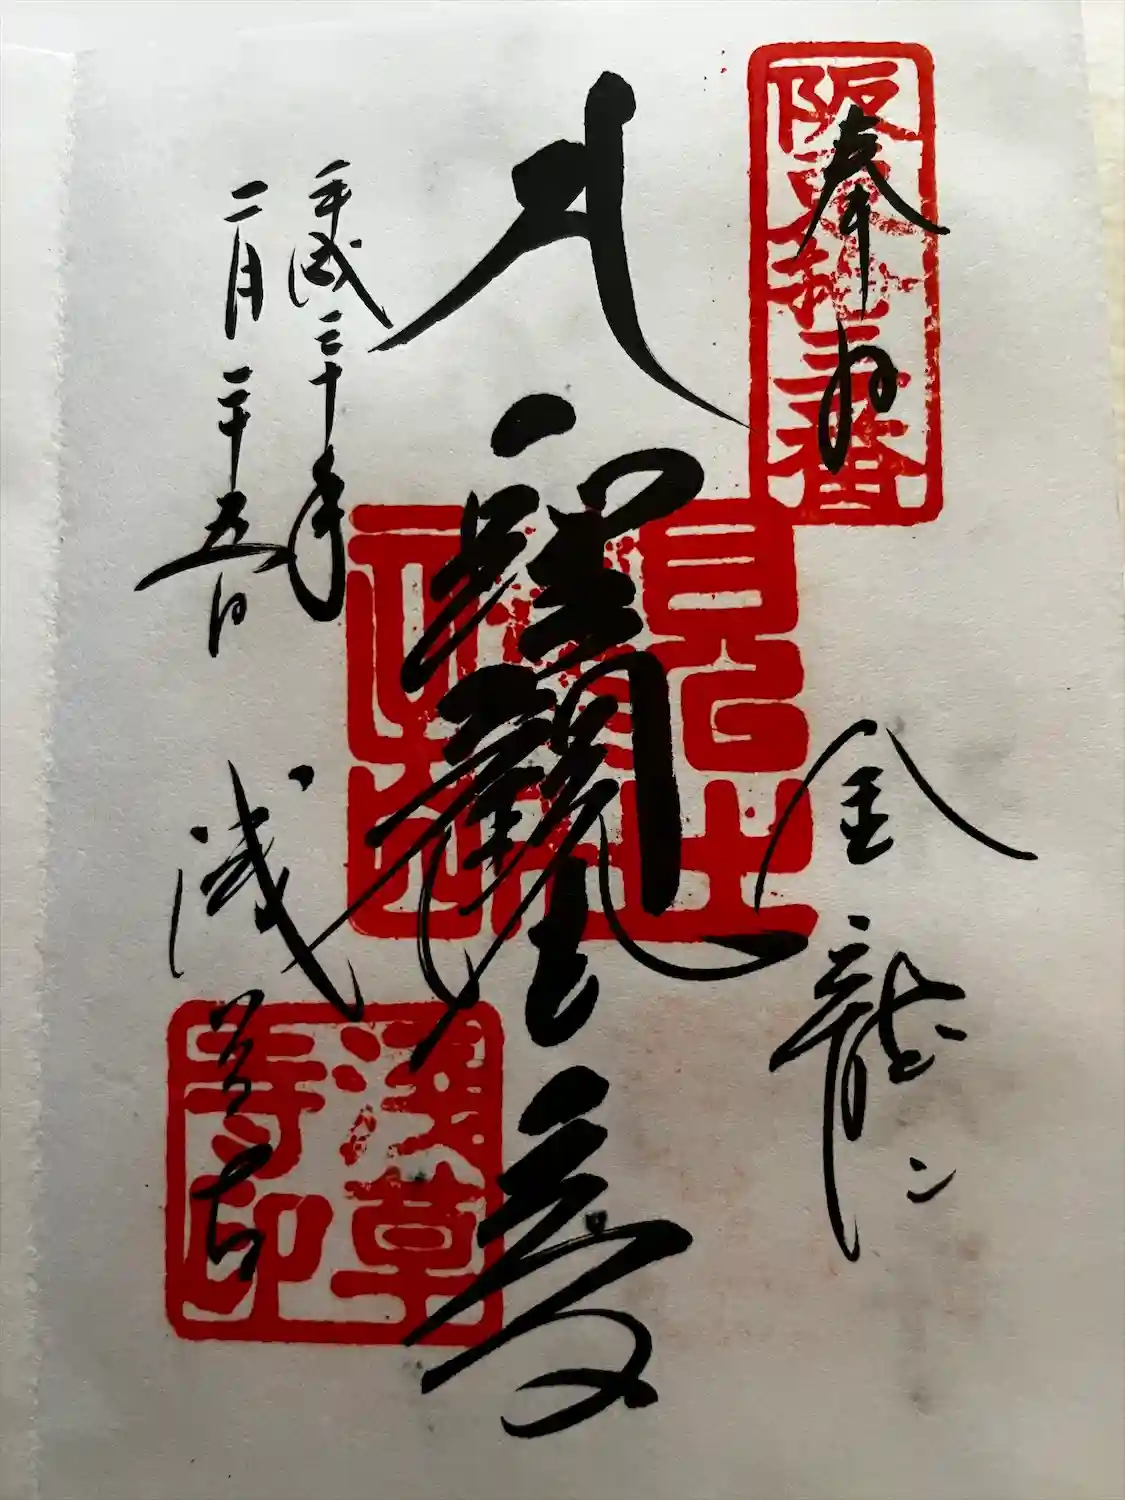 阪東拾三番
奉拝
金龍山
聖観世音
平成三十年
二月二十五日
浅草寺
浅草寺印